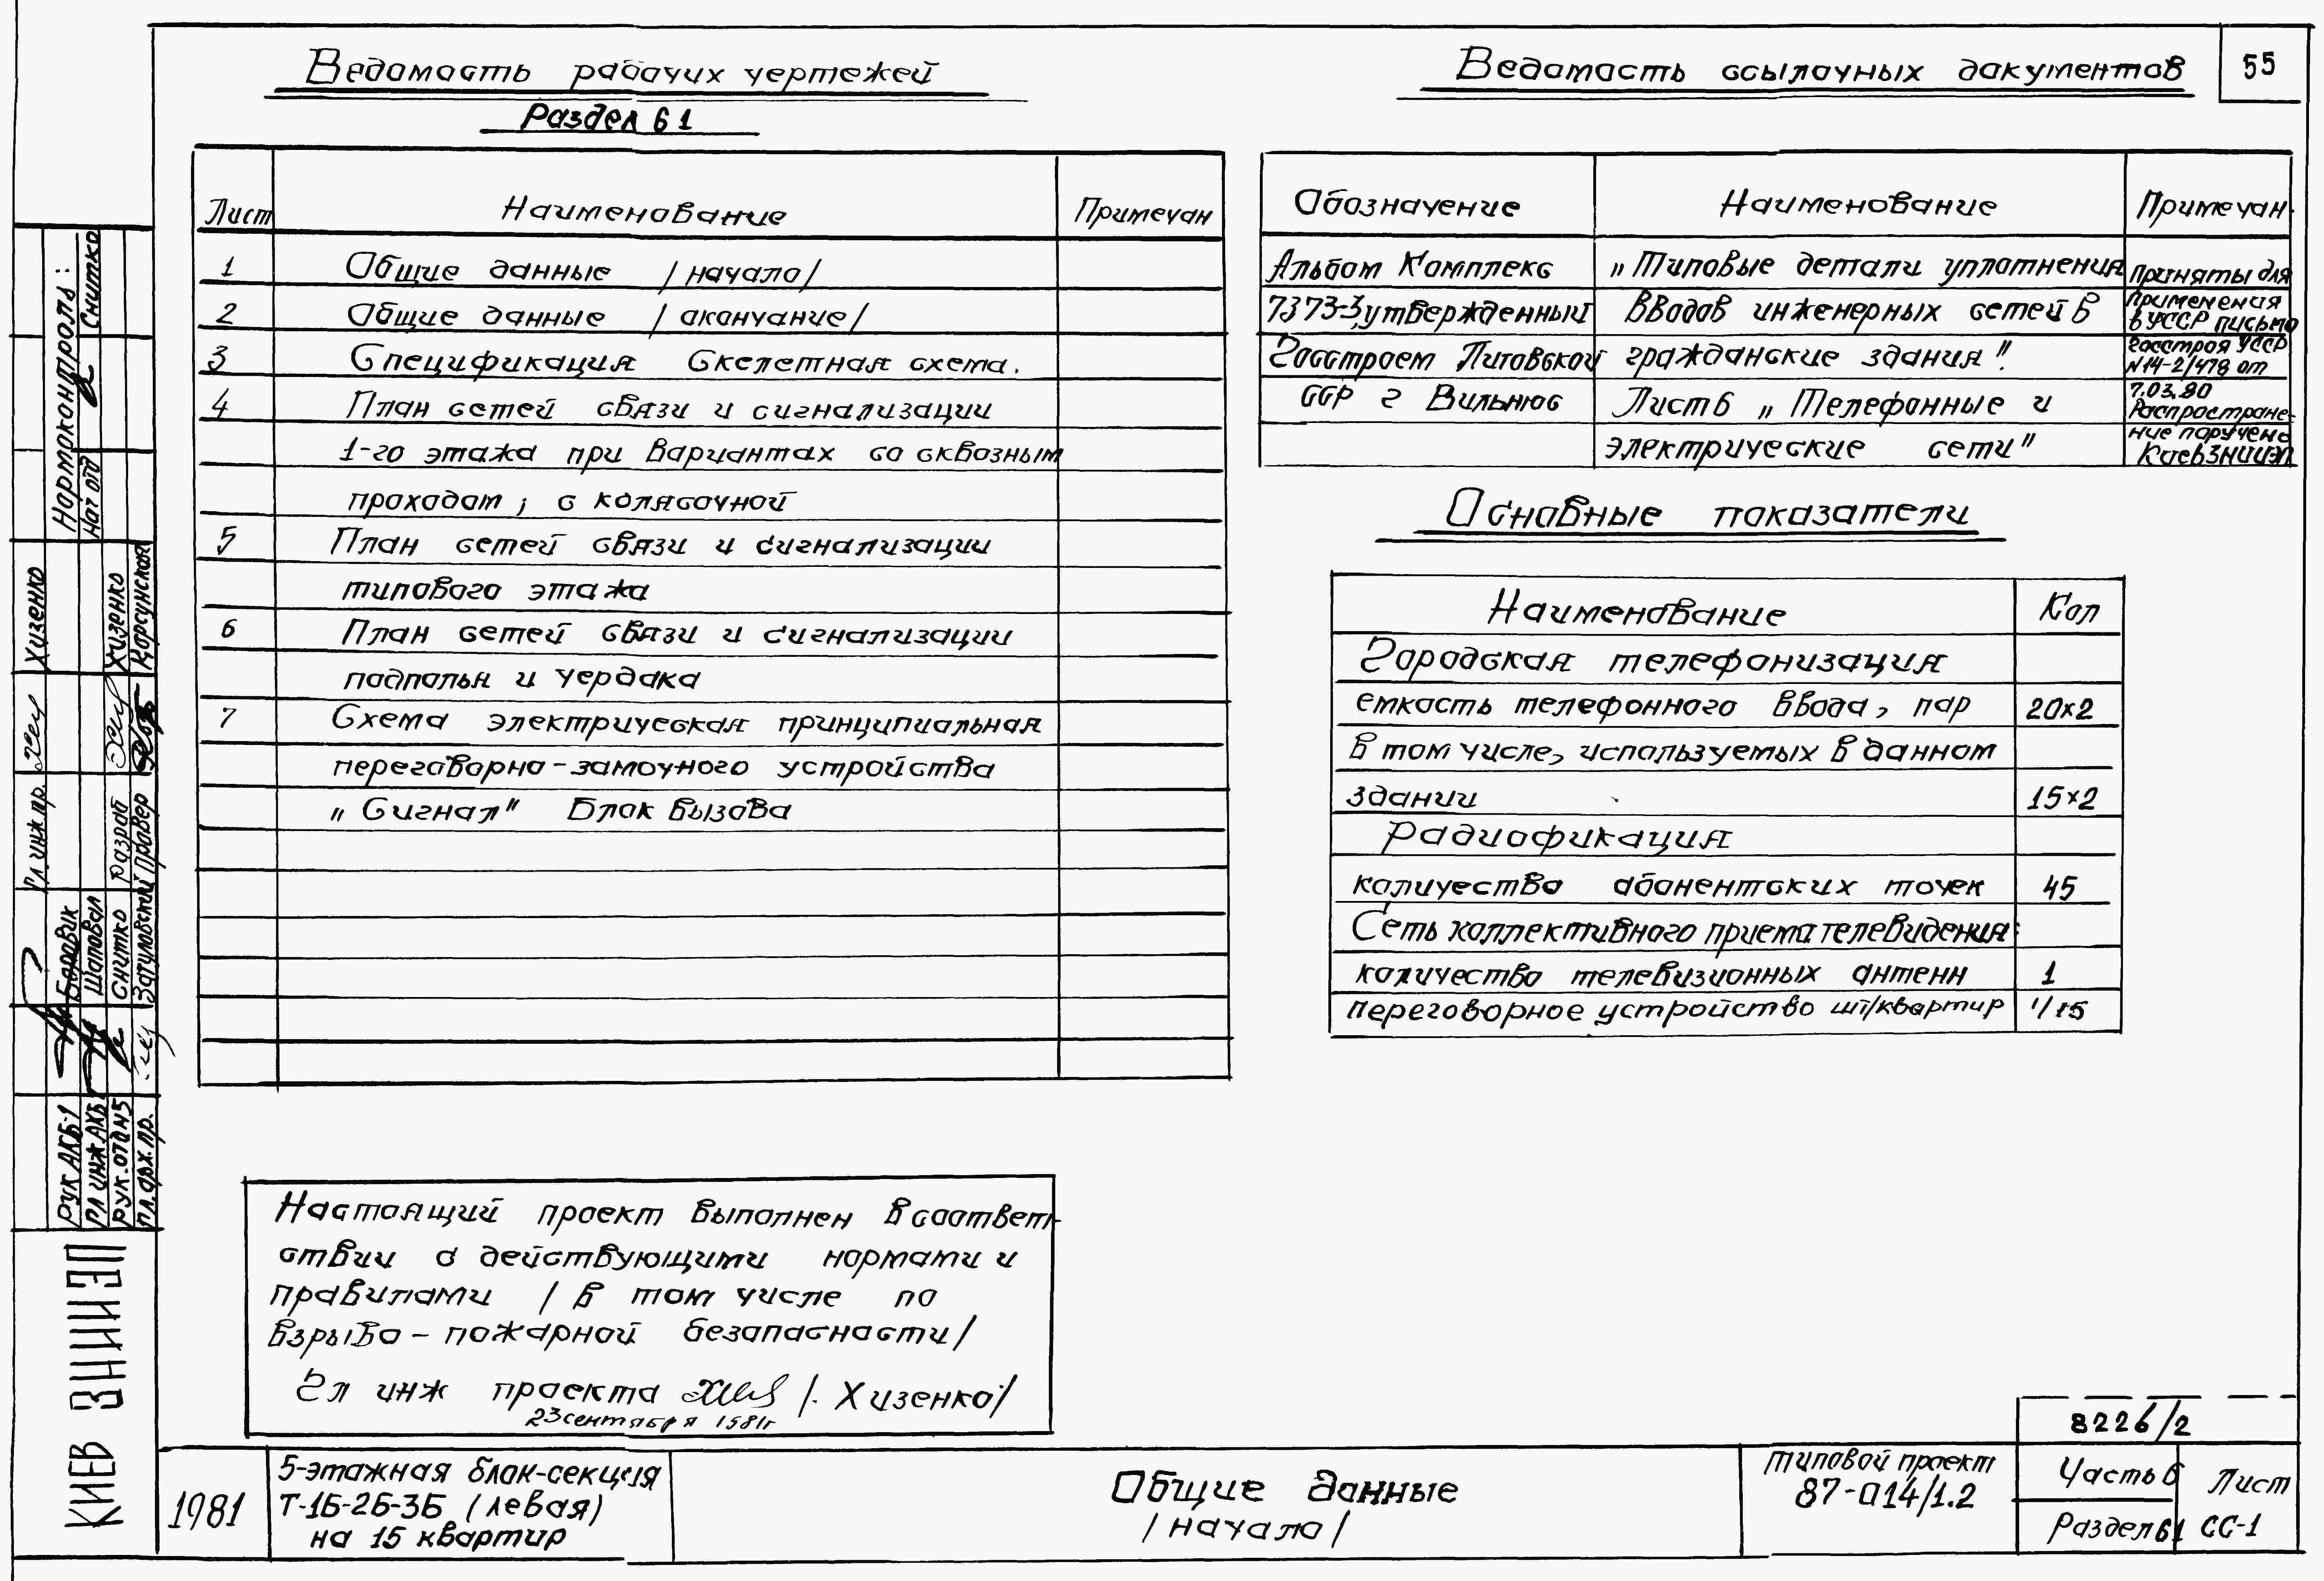 55
Ведомость рабочих чертежей
Раздел 61
Лист Наименование Примечан
1 Общие данные /начало/
2 Общие данные /окончание/
3 Спецификация Скелетная схема.
4 План сетей связи и сигнализации
1-го этажа при вариантах со сквозным
проходом; с колясочной
5 План сетей связи и сигнализации
типового этажа
6 План сетей связи и сигнализации
подполья и чердака
7 Схема электрическая принципиальная
переговорно-замочного устройства
„Сигнал" Блок вызова
Ведомость ссылочных документов
Обозначение Наименование Примечан.
Альбом Комплекс „Типовые детали уплотнения
7373-3,утвержденный вводов инженерных сетей в
Госстроем Литовской гражданские здания".
ССР г Вильнюс Лист 6 „Телефонные и
электрические сети"
приняты для
применения
в УССР письмо
госстроя УССР
N14-2/478 от
7.03.80
Распростране-
ние поручено
КиевЗНИИЭП
Основные показатели
Наименование Кол
Городская телефонизация
емкость телефонного ввода, пар 20×2
в том числе, используемых в данном
здании 15×2
Радиофикация
количество абонентских точек 45
Сеть коллективного приема телевидения:
количество телевизионных антенн 1
переговорное устройство шт/квартир 1/15
Настоящий проект выполнен в соответ-
ствии с действующими нормами и
правилами /в том числе по
взрыво-пожарной безопасности/
Гл инж проекта /. Хизенко/
23 сентября 1981г
Нормоконтроль:
Нач отд Снитко
Гл. инж пр. Хизенко
Разраб Хизенко
Провер Корсунская
Рук АКБ-1 Боравик
Гл инж АКБ1 Шаповал
Рук. отд N5 Снитко
Гл. арх. пр. Затуловский
КИЕВ ЗНИИЭП
1981
5-этажная блок-секция
Т-1Б-2Б-3Б (левая)
на 15 квартир
Общие данные
/начало/
типовой проект
87-014/1.2
8226/2
Часть 6
Раздел 61
Лист
СС-1